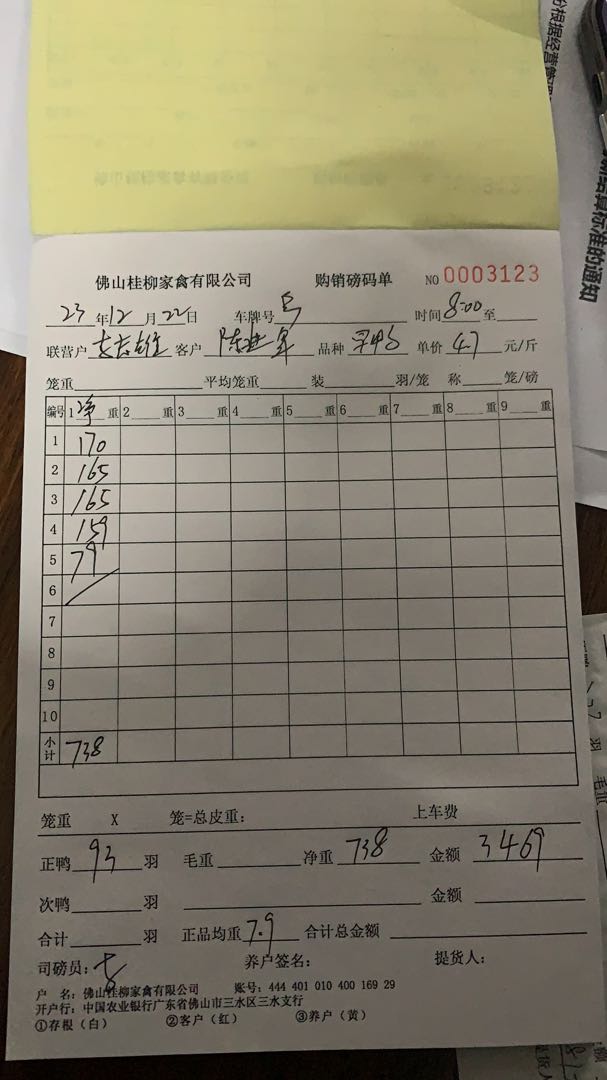 佛山桂柳家禽有限公司 购销磅码单 NO 0003123
23年12月22日 车牌号 时间8:00至
联营户 客户 陈进军 品种 单价 4.7 元/斤
笼重 平均笼重 装 羽/笼 称 笼/磅
编号 1净重 2 重 3 重 4 重 5 重 6 重 7 重 8 重 9 重
1 170
2 165
3 165
4 159
5 79
6
7
8
9
10
小计 738
笼重 X 笼=总皮重: 上车费
正鸭 93 羽 毛重 净重 738 金额 3469
次鸭 羽 金额
合计 羽 正品均重 7.9 合计总金额
司磅员: 养户签名: 提货人:
户 名: 佛山桂柳家禽有限公司 账号: 444 401 010 400 169 29
开户行: 中国农业银行广东省佛山市三水区三水支行
①存根(白) ②客户(红) ③养户(黄)